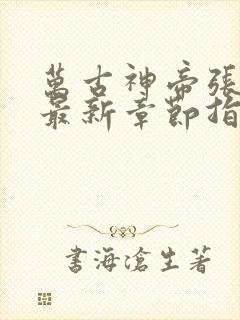 萬古神帝張
最新章節指
書海滄生著